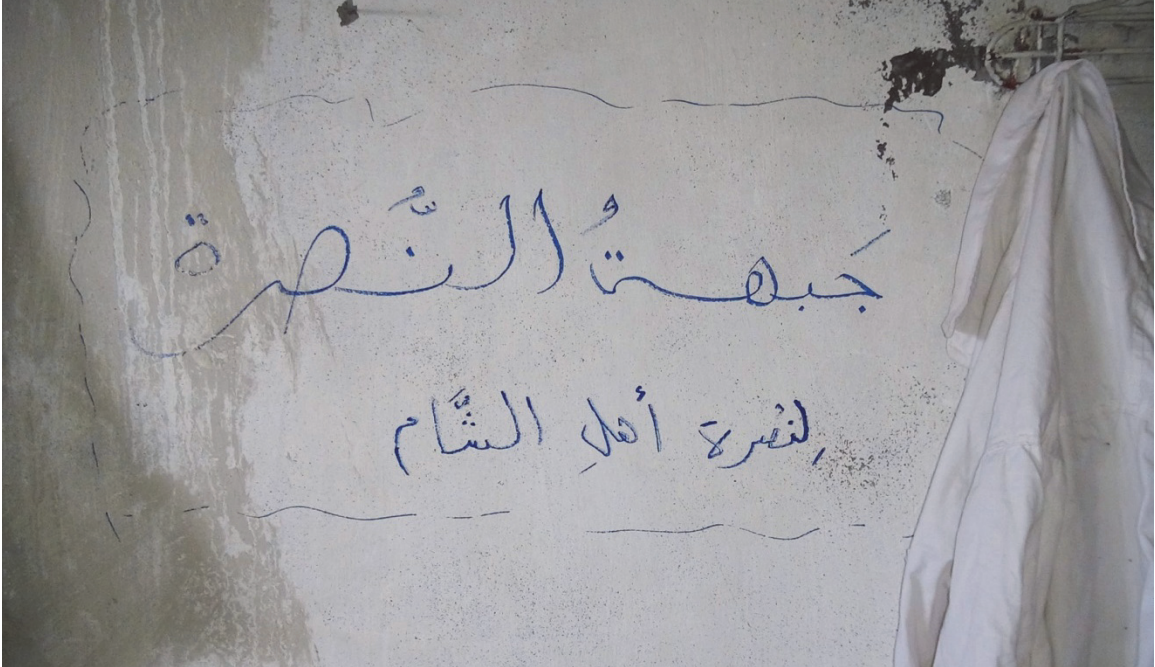 جَبهةُ النَّصرة
لِنصرة أهلِ الشَّام